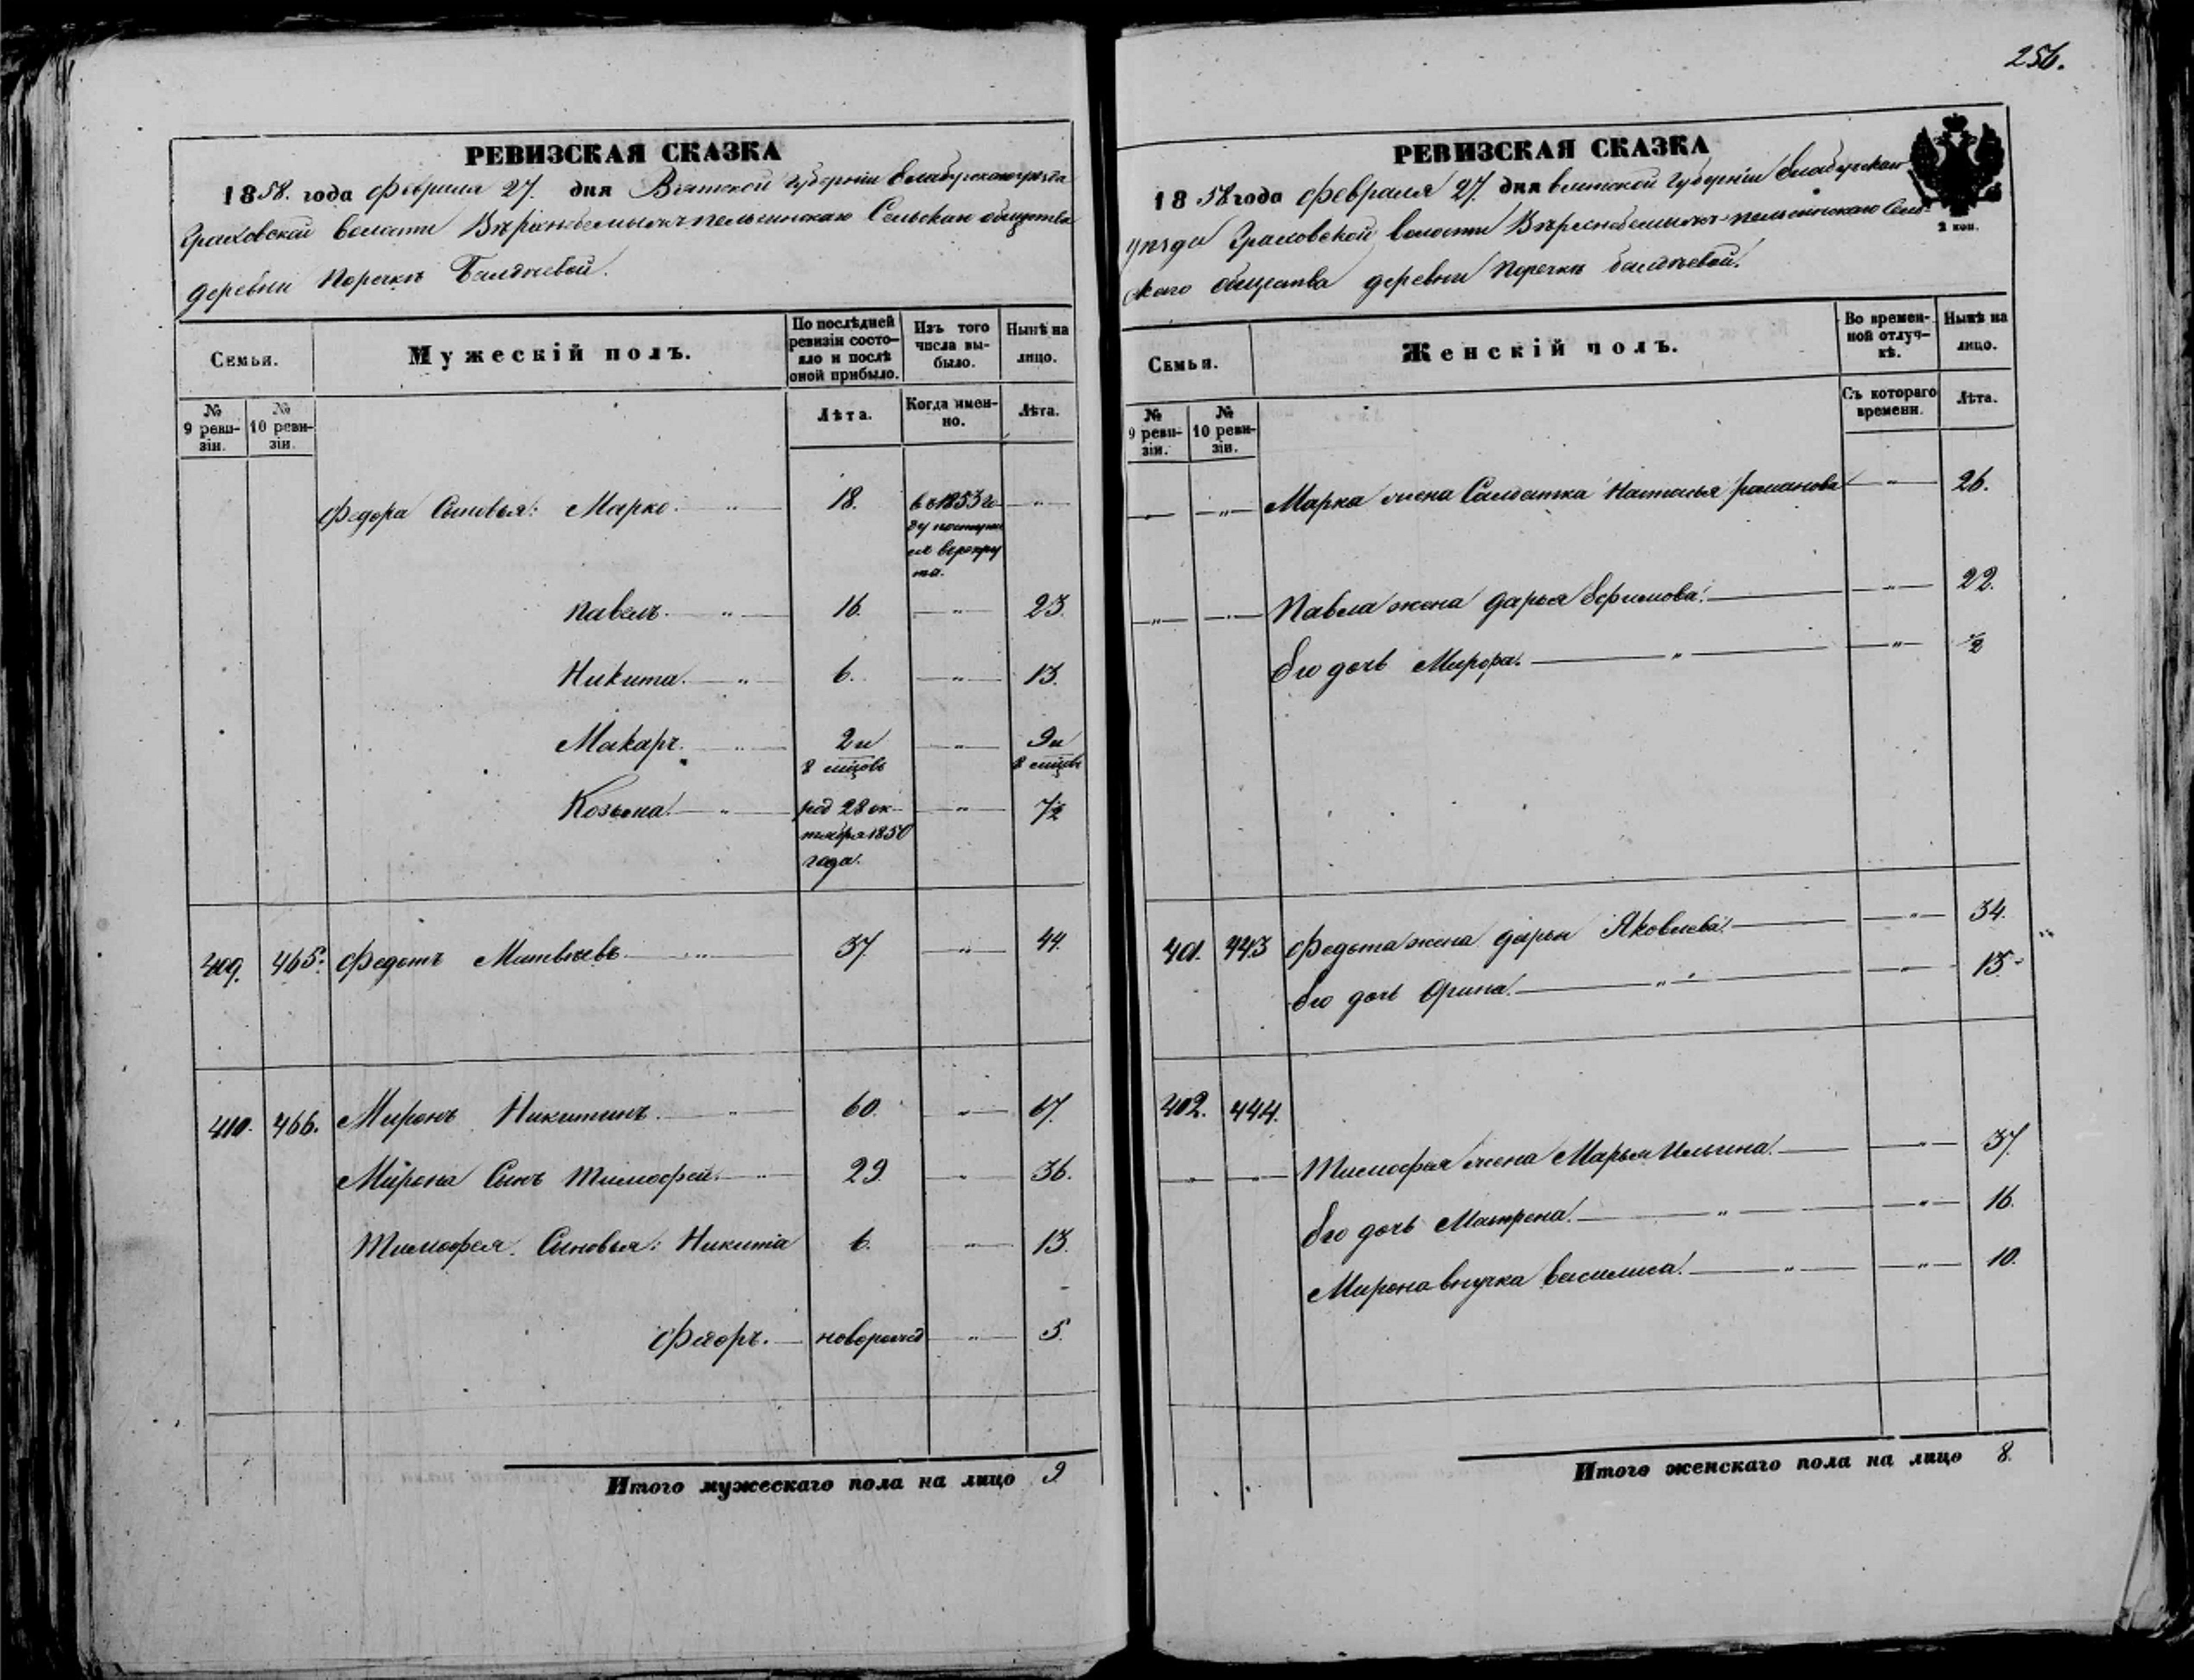 256.
РЕВИЗСКАЯ СКАЗКА
1858. года Февраля 27. дня Вятской Губернiи Елабугскаго уѣзда
Граховской волости сельскаго общества
деревни Поречкъ Балдѣевой.
Семьи.
Мужескiй полъ.
По послѣдней ревизiи состояло и послѣ оной прибыло.
Изъ того числа выбыло.
Нынѣ на лицо.
№ 9 ревизiи.
№ 10 ревизiи.
Лѣта.
Когда именно.
Лѣта.
Федора Сыновья: Марко. — „ — 18. въ 1853 го- — „ —
ду поступи
лъ врекру
та.
Павелъ. — „ — 16. — „ — 23.
Никита. — „ — 6. — „ — 13.
Макаръ. — „ — 2 и — „ — 9 и
8 мцовъ 8 мцовъ
Козьма. — „ — род 28 ок- — „ — 7½
тября 1850
года.
409. 465. Федотъ Матвѣевъ — „ — 37. — „ — 44.
410. 466. Миронъ Никитинъ. — „ — 60. — „ — 67.
Мирона Сынъ Тимофей. — „ — 29. — „ — 36.
Тимофея Сыновья: Никита 6. — „ — 13.
Федоръ. — новорожд — „ — 5.
Итого мужескаго пола на лицо 9
РЕВИЗСКАЯ СКАЗКА
1858 года Февраля 27. дня вятской Губернiи Елабугскаго
уѣзда Граховской волости Сель-
скаго общества деревни Поречкъ балдѣевой.
2 коп.
Семьи.
Женскiй полъ.
Во временной отлучкѣ.
Нынѣ на лицо.
№ 9 ревизiи.
№ 10 ревизiи.
Съ котораго времени.
Лѣта.
— „ — — „ — Марка жена Салдатка Наталья романова — „ — 26.
— „ — — „ — Павла жена дарья Ефимова. — — „ — 22.
Его дочь — „ — — „ — ½
401. 443 Федота жена дарья Яковлева. — — „ — 34.
Его дочь Орина. — „ — — „ — 15.
402. 444.
— „ — — „ — Тимофея жена Марья Ильина. — — „ — 37.
Его дочь Матрена. — „ — — „ — 16.
Мирона внучка василиса. — „ — — „ — 10.
Итого женскаго пола на лицо 8.